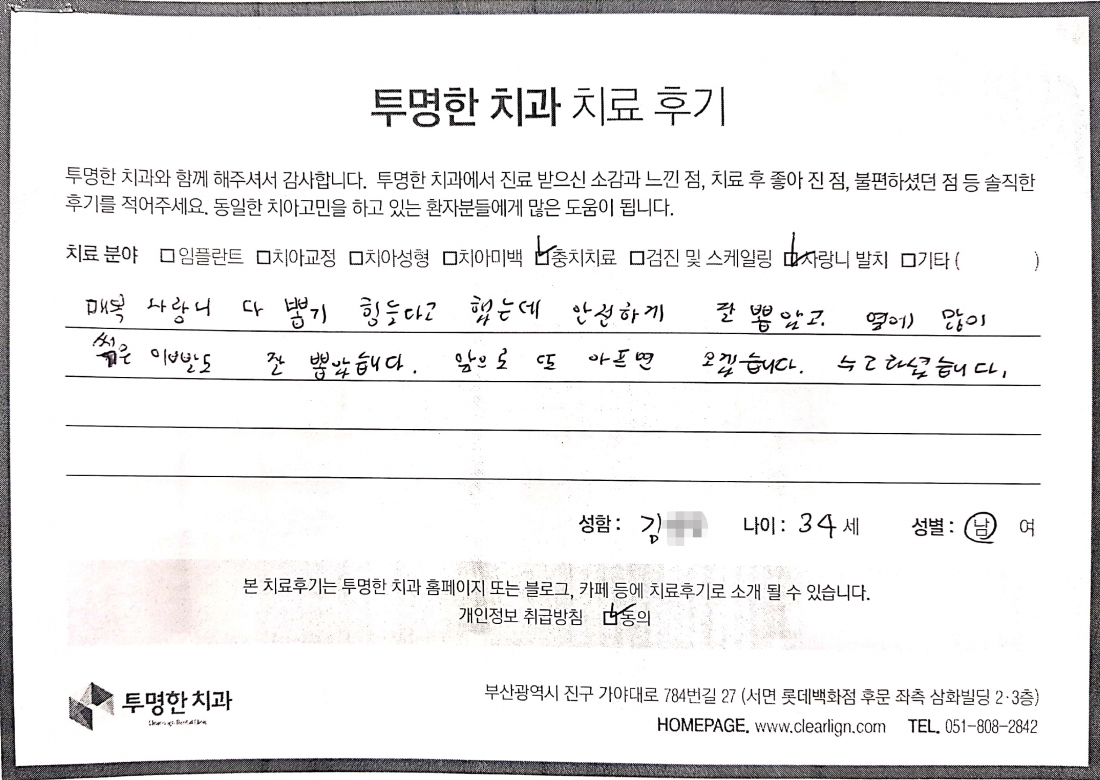 투명한 치과 치료 후기
투명한 치과와 함께 해주셔서 감사합니다. 투명한 치과에서 진료 받으신 소감과 느낀 점, 치료 후 좋아 진 점, 불편하셨던 점 등 솔직한
후기를 적어주세요. 동일한 치아고민을 하고 있는 환자분들에게 많은 도움이 됩니다.
치료 분야 □임플란트 □치아교정 □치아성형 □치아미백 ☑충치치료 □검진 및 스케일링 ☑사랑니 발치 □기타 ( )
매복 사랑니 다 뽑기 힘든다고 했는데 안전하게 잘 뽑았고. 옆에 많이
썩은 이빨도 잘 뽑았습니다. 앞으로 또 아프면 오겠습니다.
성함 : 김 나이 : 34 세 성별 : 남 여
본 치료후기는 투명한 치과 홈페이지 또는 블로그, 카페 등에 치료후기로 소개 될 수 있습니다.
개인정보 취급방침 ☑동의
투명한 치과
부산광역시 진구 가야대로 784번길 27 (서면 롯데백화점 후문 좌측 삼화빌딩 2·3층)
HOMEPAGE. www.clearlign.com TEL. 051-808-2842